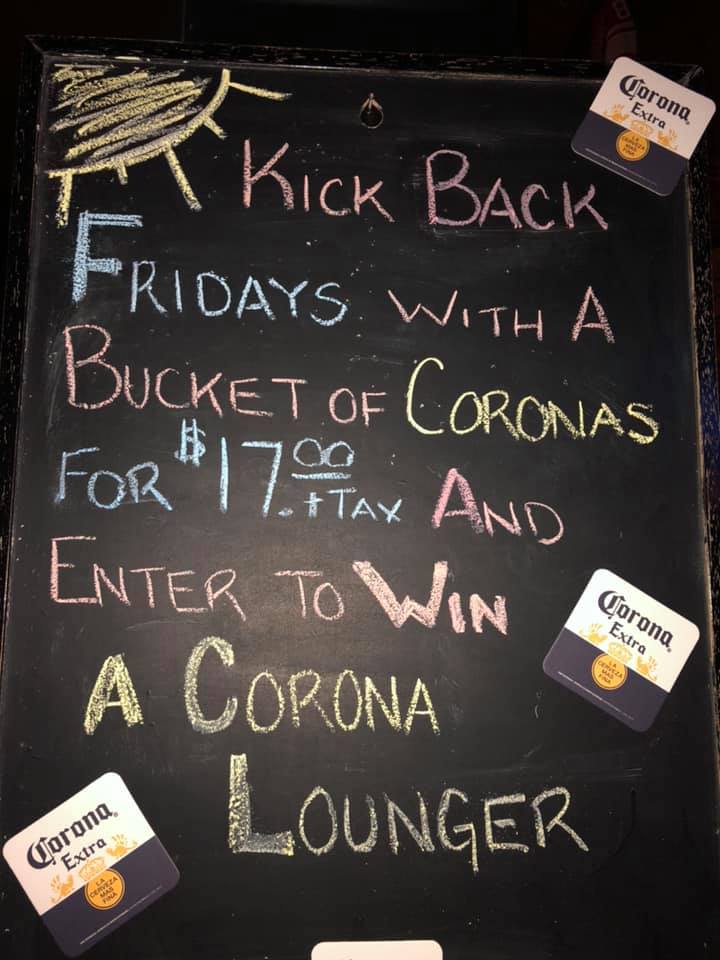 Corona
Extra
LA
CERVEZA
MAS
FINA
KICK BACK
FRIDAYS WITH A
BUCKET OF CORONAS
FOR $17.00 +TAX AND
ENTER TO WIN
A CORONA
LOUNGER
Corona
Extra
LA
CERVEZA
MAS
FINA
Corona
Extra
LA
CERVEZA
MAS
FINA